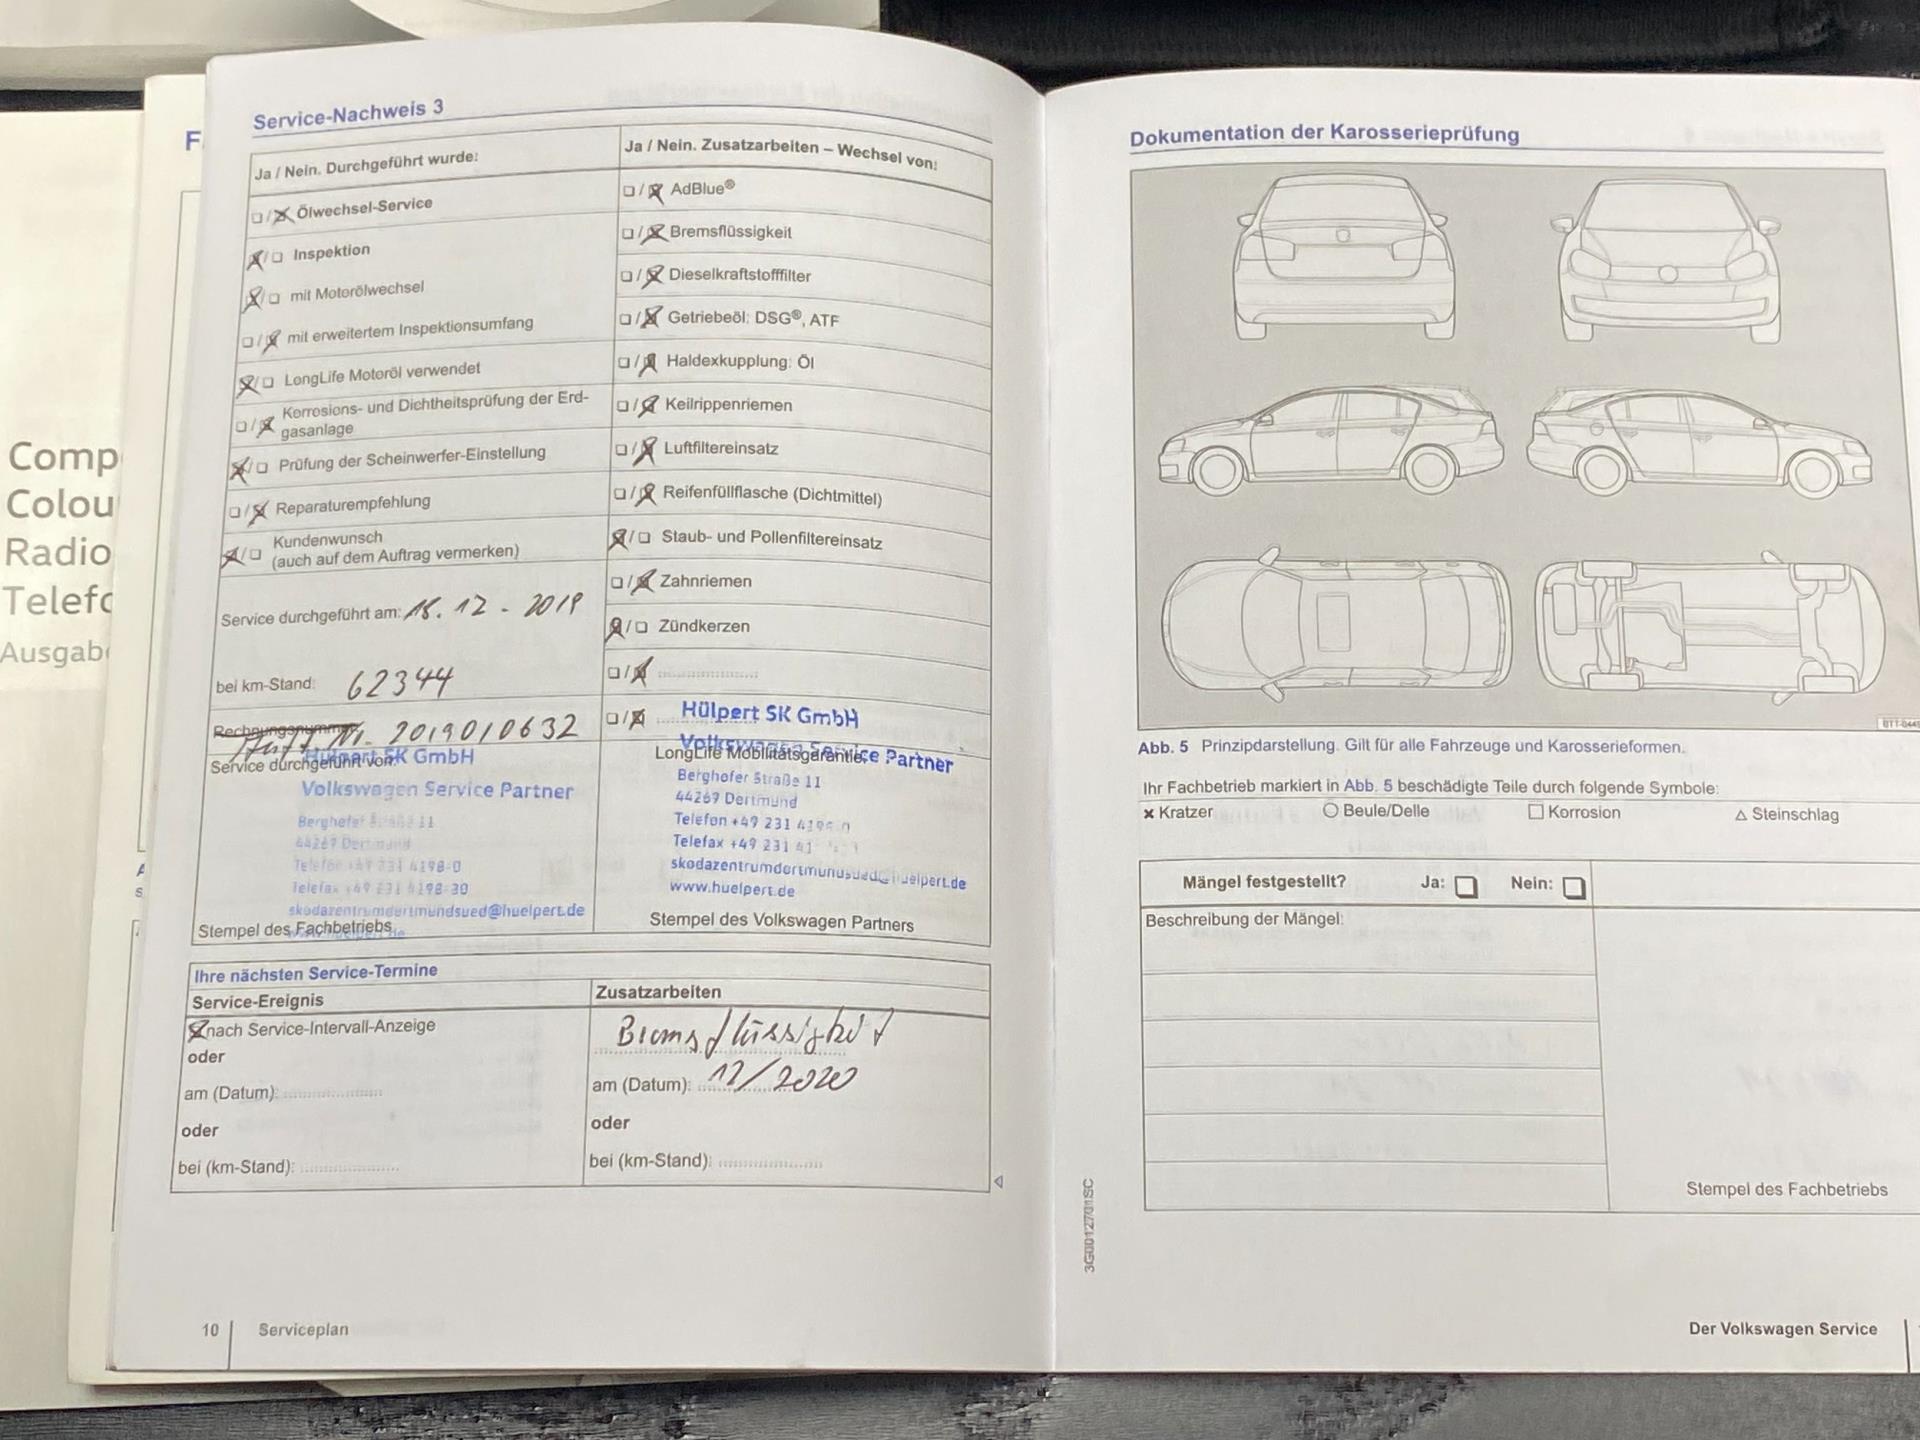 Comp
Colou
Radio
Telefo
Ausgab
F
Service-Nachweis 3
Ja / Nein. Durchgeführt wurde:
☐/☒ Ölwechsel-Service
☒/☐ Inspektion
☒/☐ mit Motorölwechsel
☐/☒ mit erweitertem Inspektionsumfang
☒/☐ LongLife Motoröl verwendet
☐/☒ Korrosions- und Dichtheitsprüfung der Erd-
gasanlage
☒/☐ Prüfung der Scheinwerfer-Einstellung
☐/☒ Reparaturempfehlung
☒/☐ Kundenwunsch
(auch auf dem Auftrag vermerken)
Service durchgeführt am: 18.12-2019
bei km-Stand: 62344
Rechnungsnummer
2019010632
Service durchgeführt von:
Hülpert SK GmbH
Volkswagen Service Partner
Berghofer Straße 11
44269 Dortmund
Telefon +49 231 4198-0
Telefax +49 231 4198-30
skodazentrumdortmundsued@huelpert.de
www.huelpert.de
Stempel des Fachbetriebs
Ja / Nein. Zusatzarbeiten – Wechsel von:
☐/☒ AdBlue®
☐/☒ Bremsflüssigkeit
☐/☒ Dieselkraftstofffilter
☐/☒ Getriebeöl: DSG®, ATF
☐/☒ Haldexkupplung: Öl
☐/☒ Keilrippenriemen
☐/☒ Luftfiltereinsatz
☐/☒ Reifenfüllflasche (Dichtmittel)
☒/☐ Staub- und Pollenfiltereinsatz
☐/☒ Zahnriemen
☒/☐ Zündkerzen
☐/☒
☐/☒
Hülpert SK GmbH
Volkswagen Service Partner
LongLife Mobilitätsgarantie:
Berghofer Straße 11
44269 Dortmund
Telefon +49 231 4198-0
Telefax +49 231 41
skodazentrumdortmundsued@huelpert.de
www.huelpert.de
Stempel des Volkswagen Partners
Ihre nächsten Service-Termine
Service-Ereignis
☒ nach Service-Intervall-Anzeige
oder
am (Datum):
oder
bei (km-Stand):
Zusatzarbeiten
Bremsflüssigkeit
am (Datum): 12/2020
oder
bei (km-Stand):
10
Serviceplan
Dokumentation der Karosserieprüfung
Abb. 5 Prinzipdarstellung. Gilt für alle Fahrzeuge und Karosserieformen.
Ihr Fachbetrieb markiert in Abb. 5 beschädigte Teile durch folgende Symbole:
× Kratzer ○ Beule/Delle □ Korrosion △ Steinschlag
Mängel festgestellt? Ja: ☐ Nein: ☐
Beschreibung der Mängel:
Stempel des Fachbetriebs
3G0012701SC
Der Volkswagen Service